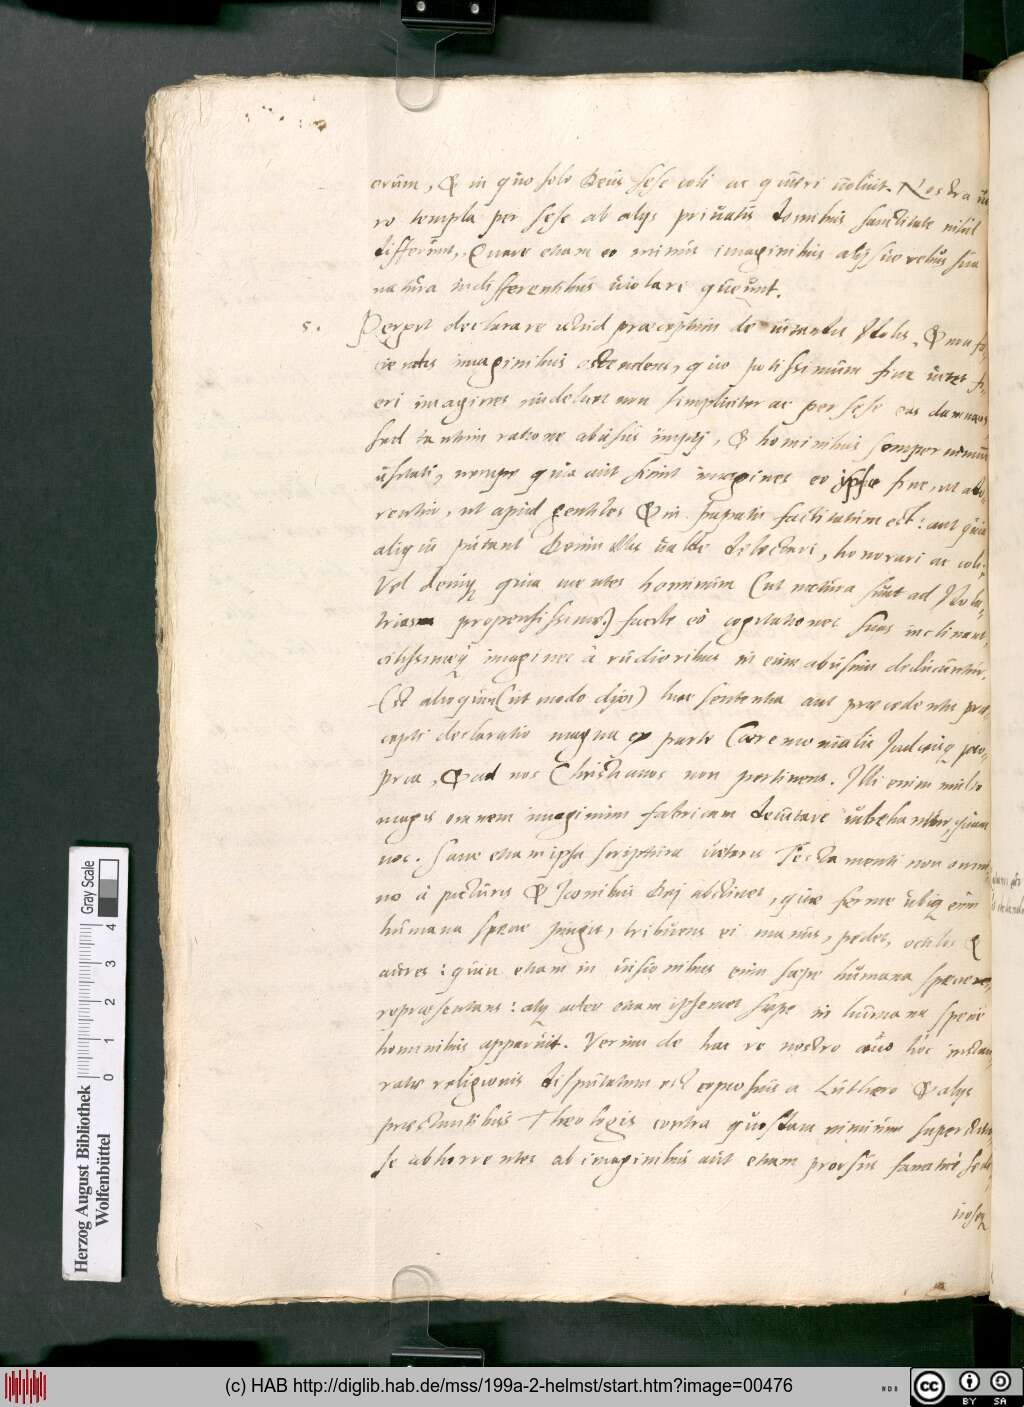 erum, & in quo solo Deus sese coli ac quæri voluit. Nostra ve
ro templa per sese ab alijs privatis domibus sanctitate nihil
differunt, Quare etiam eo minus imaginibus alijsve rebus sua
natura indifferentibus violari queunt.
5. Pergit declarare illud præceptum de vitandis Idolis, & non fa-
ciendis imaginibus ostendens, quo potissimum fine vetet fi-
eri imagines videlicet non simpliciter ac per sese eas damnans,
sed tantum ratione abusus impij, & hominibus semper nimium
usitati, nempe quia aut fiunt imagines eo ipso fine, ut ado-
rentur, ut apud gentiles & in papatu factitatum est: aut quia
aliqui putant Deum illis valde delectari, honorari ac coli:
Vel deniq quia mentes hominum (ut natura sunt ad Idola-
triam propensissimæ) facile eò cogitationes suas inclinant,
citissimeq imagines à rudioribus in eum abusum deducuntur.
Est alioquin (ut modo dixi) hæc sententia aut præcedentis præ-
cepti declaratio magna ex parte Cæremonialis Judæisq pro-
pria, & ad nos Christianos non pertinens. Illi enim multo
magis omnem imaginum fabricam devitare iubebantur, quam
nos. Sane etiam ipsa scriptura veteris Testamenti non omni-
no à picturis & Iconibus Dej abstinet, quæ ferme ubiq eum
humana specie pingit, tribuens ei manus, pedes, oculos &
aures: quin etiam in visionibus eum sæpe humana specie re-
repræsentans: atq adeo etiam ipsemet sæpe in humana specie
hominibus apparuit. Verum de hac re nostro ævo hoc instau-
ratæ religionis disputatum est copiosius a Luthero & alijs
præstantibus Theologis contra quosdam nimium superstitio-
se abhorrentes ab imaginibus aut etiam prorsus fanaticè sedi-
iososq
0 1 2 3 4
Gray Scale
Herzog August Bibliothek
Wolfenbüttel
(c) HAB http://diglib.hab.de/mss/199a-2-helmst/start.htm?image=00476
cc BY SA